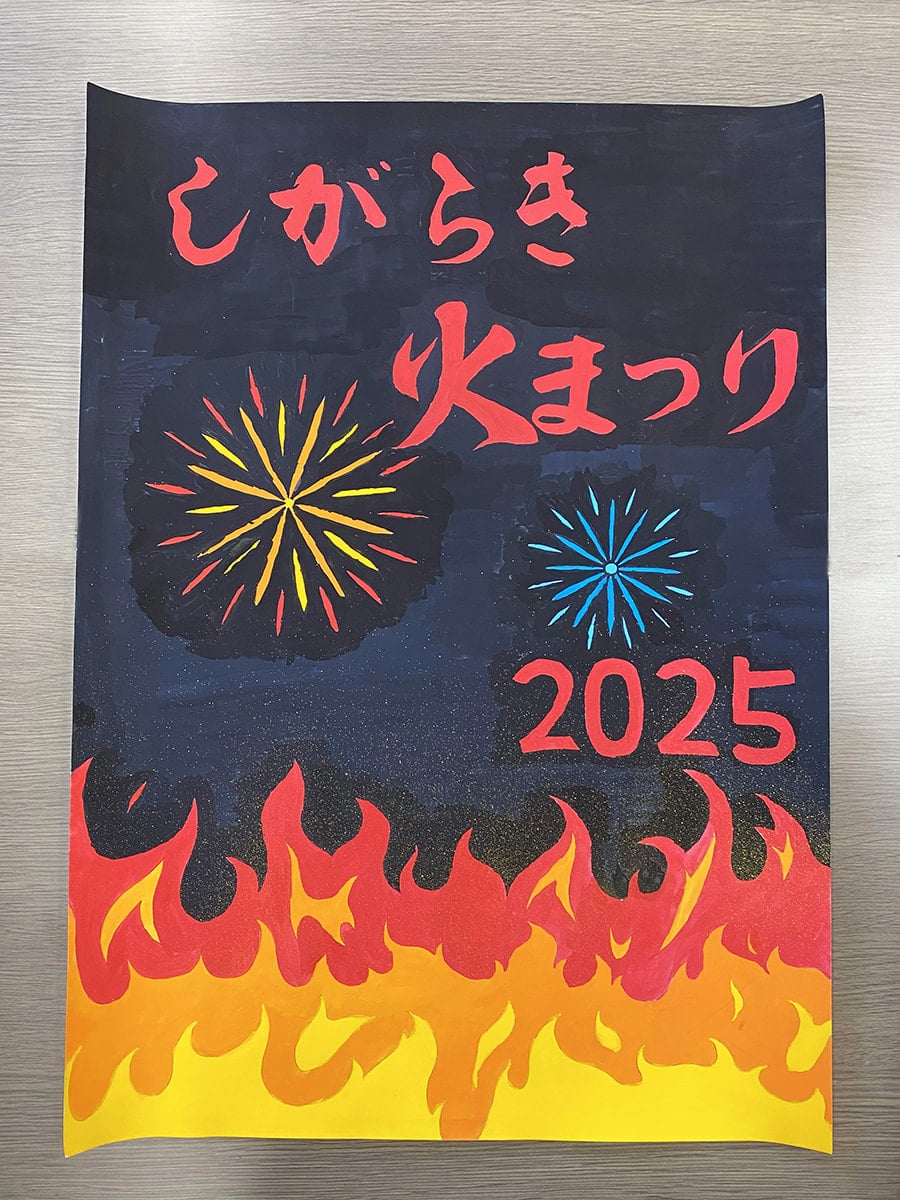 しがらき
火まつり
2025